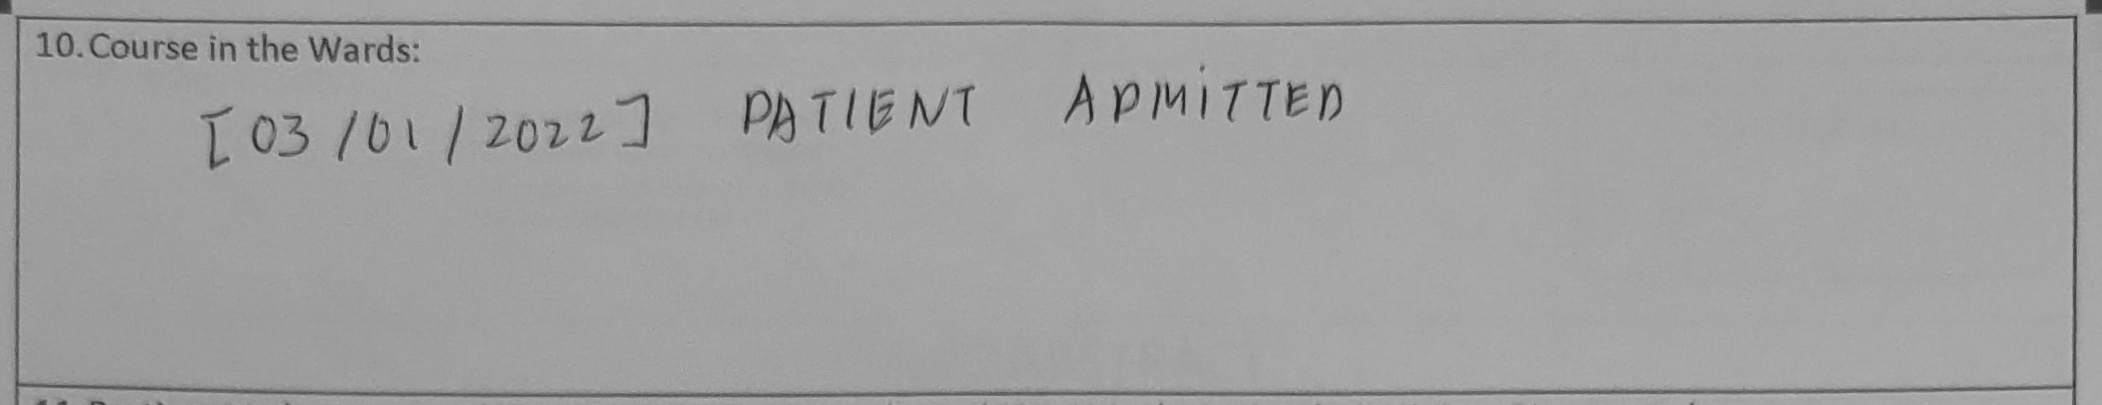 10. Course in the Wards:
[03/01/2022] PATIENT ADMITTED